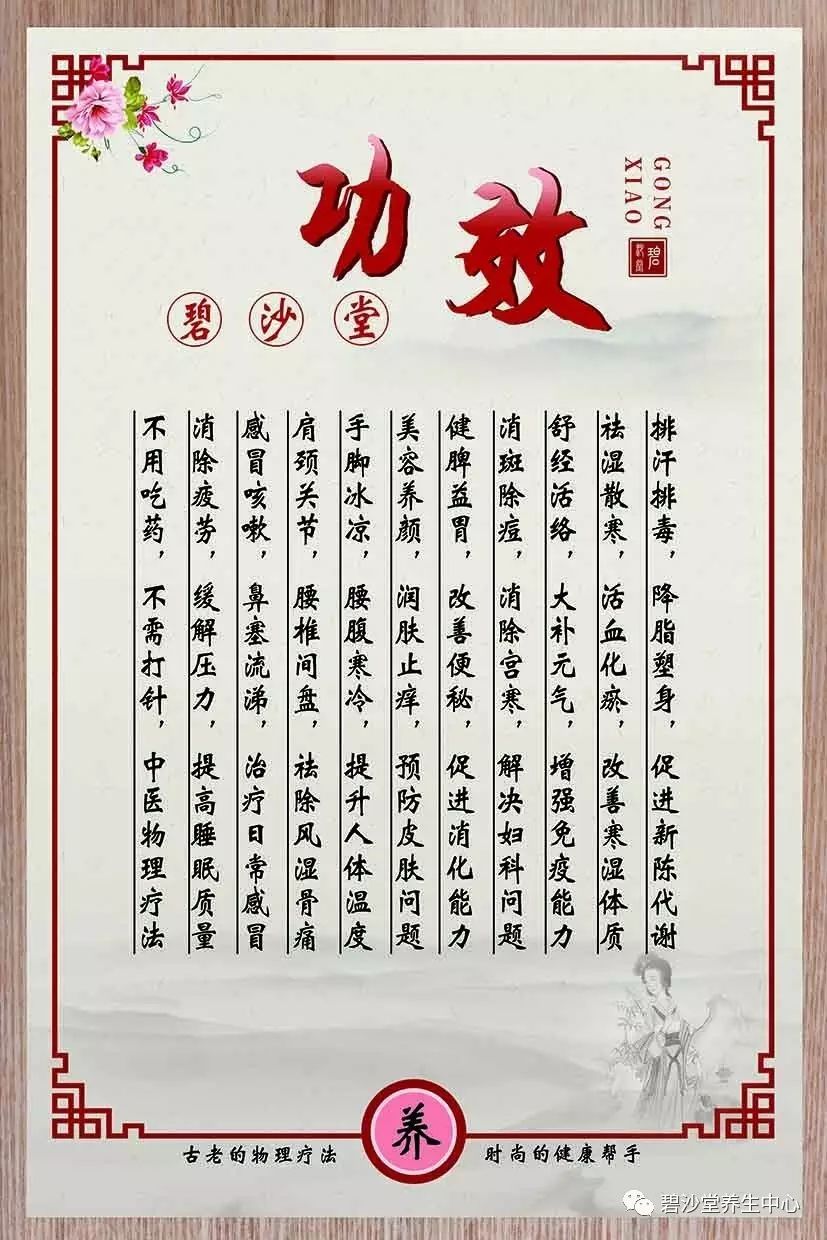 功效
GONG
XIAO
碧沙堂
碧沙堂
排汗排毒,降脂塑身,促进新陈代谢
祛湿散寒,活血化瘀,改善寒湿体质
舒经活络,大补元气,增强免疫能力
消斑除痘,消除宫寒,解决妇科问题
健脾益胃,改善便秘,促进消化能力
美容养颜,润肤止痒,预防皮肤问题
手脚冰凉,腰腹寒冷,提升人体温度
肩颈关节,腰椎间盘,祛除风湿骨痛
感冒咳嗽,鼻塞流涕,治疗日常感冒
消除疲劳,缓解压力,提高睡眠质量
不用吃药,不需打针,中医物理疗法
古老的物理疗法
养
时尚的健康帮手
碧沙堂养生中心